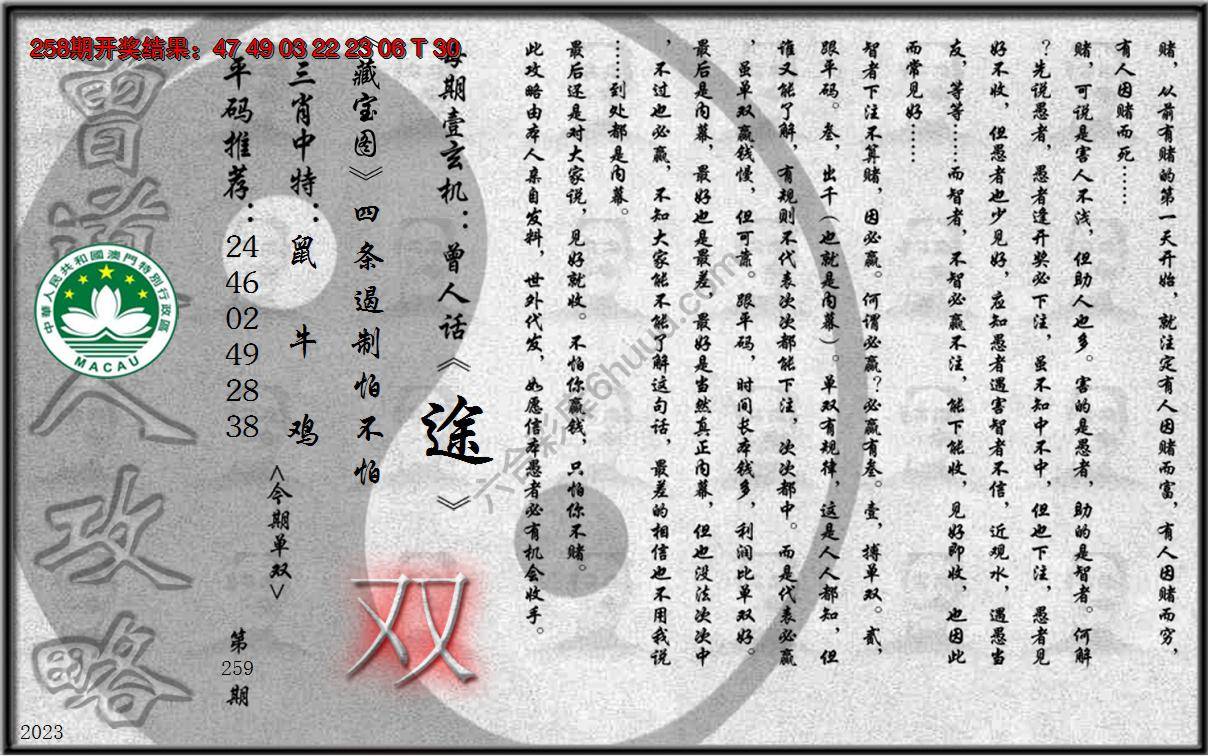 258期开奖结果：47 49 03 22 23 06 T 30
赌，从前有赌的第一天开始，就注定有人因赌而富，有人因赌而穷，
有人因赌而死……
赌，可说是害人不浅，但助人也多。害的是愚者，助的是智者。何解
？先说愚者，愚者逢开奖必下注，虽不知中不中，但也下注，愚者见
好不收，但愚者也少见好，应知愚者遇害智者不信，近观水，遇愚当
友，等等……而智者，不智必赢不注，能下能收，见好即收，也因此
而常见好……
智者下注不算赌，因必赢。何谓必赢？必赢有叁。壹，搏单双。贰，
跟平码。叁，出千（也就是内幕）。单双有规律，这是人人都知，但
谁又能了解，有规则不代表次次都能下注，次次都中。而是代表必赢
，虽单双赢钱慢，但可靠。跟平码，时间长本钱多，利润比单双好。
最后是内幕，最好也是最差，最好是当然真正内幕，但也没法次次中
，不过也必赢，不知大家能不能了解这句话，最差的相信也不用我说
……到处都是内幕。
最后还是对大家说，见好就收。不怕你赢钱，只怕你不赌。
此攻略由本人亲自发料，世外代发，如愿信本愚者必有机会收手。
每期壹玄机：曾人话《途》
《藏宝图》四条遏制怕不怕
双
三肖中特：鼠 牛 鸡
<今期单双>
平码推荐：24 46 02 49 28 38
第259期
曾道人攻略
中華人民共和國澳門特別行政區
MACAU
2023